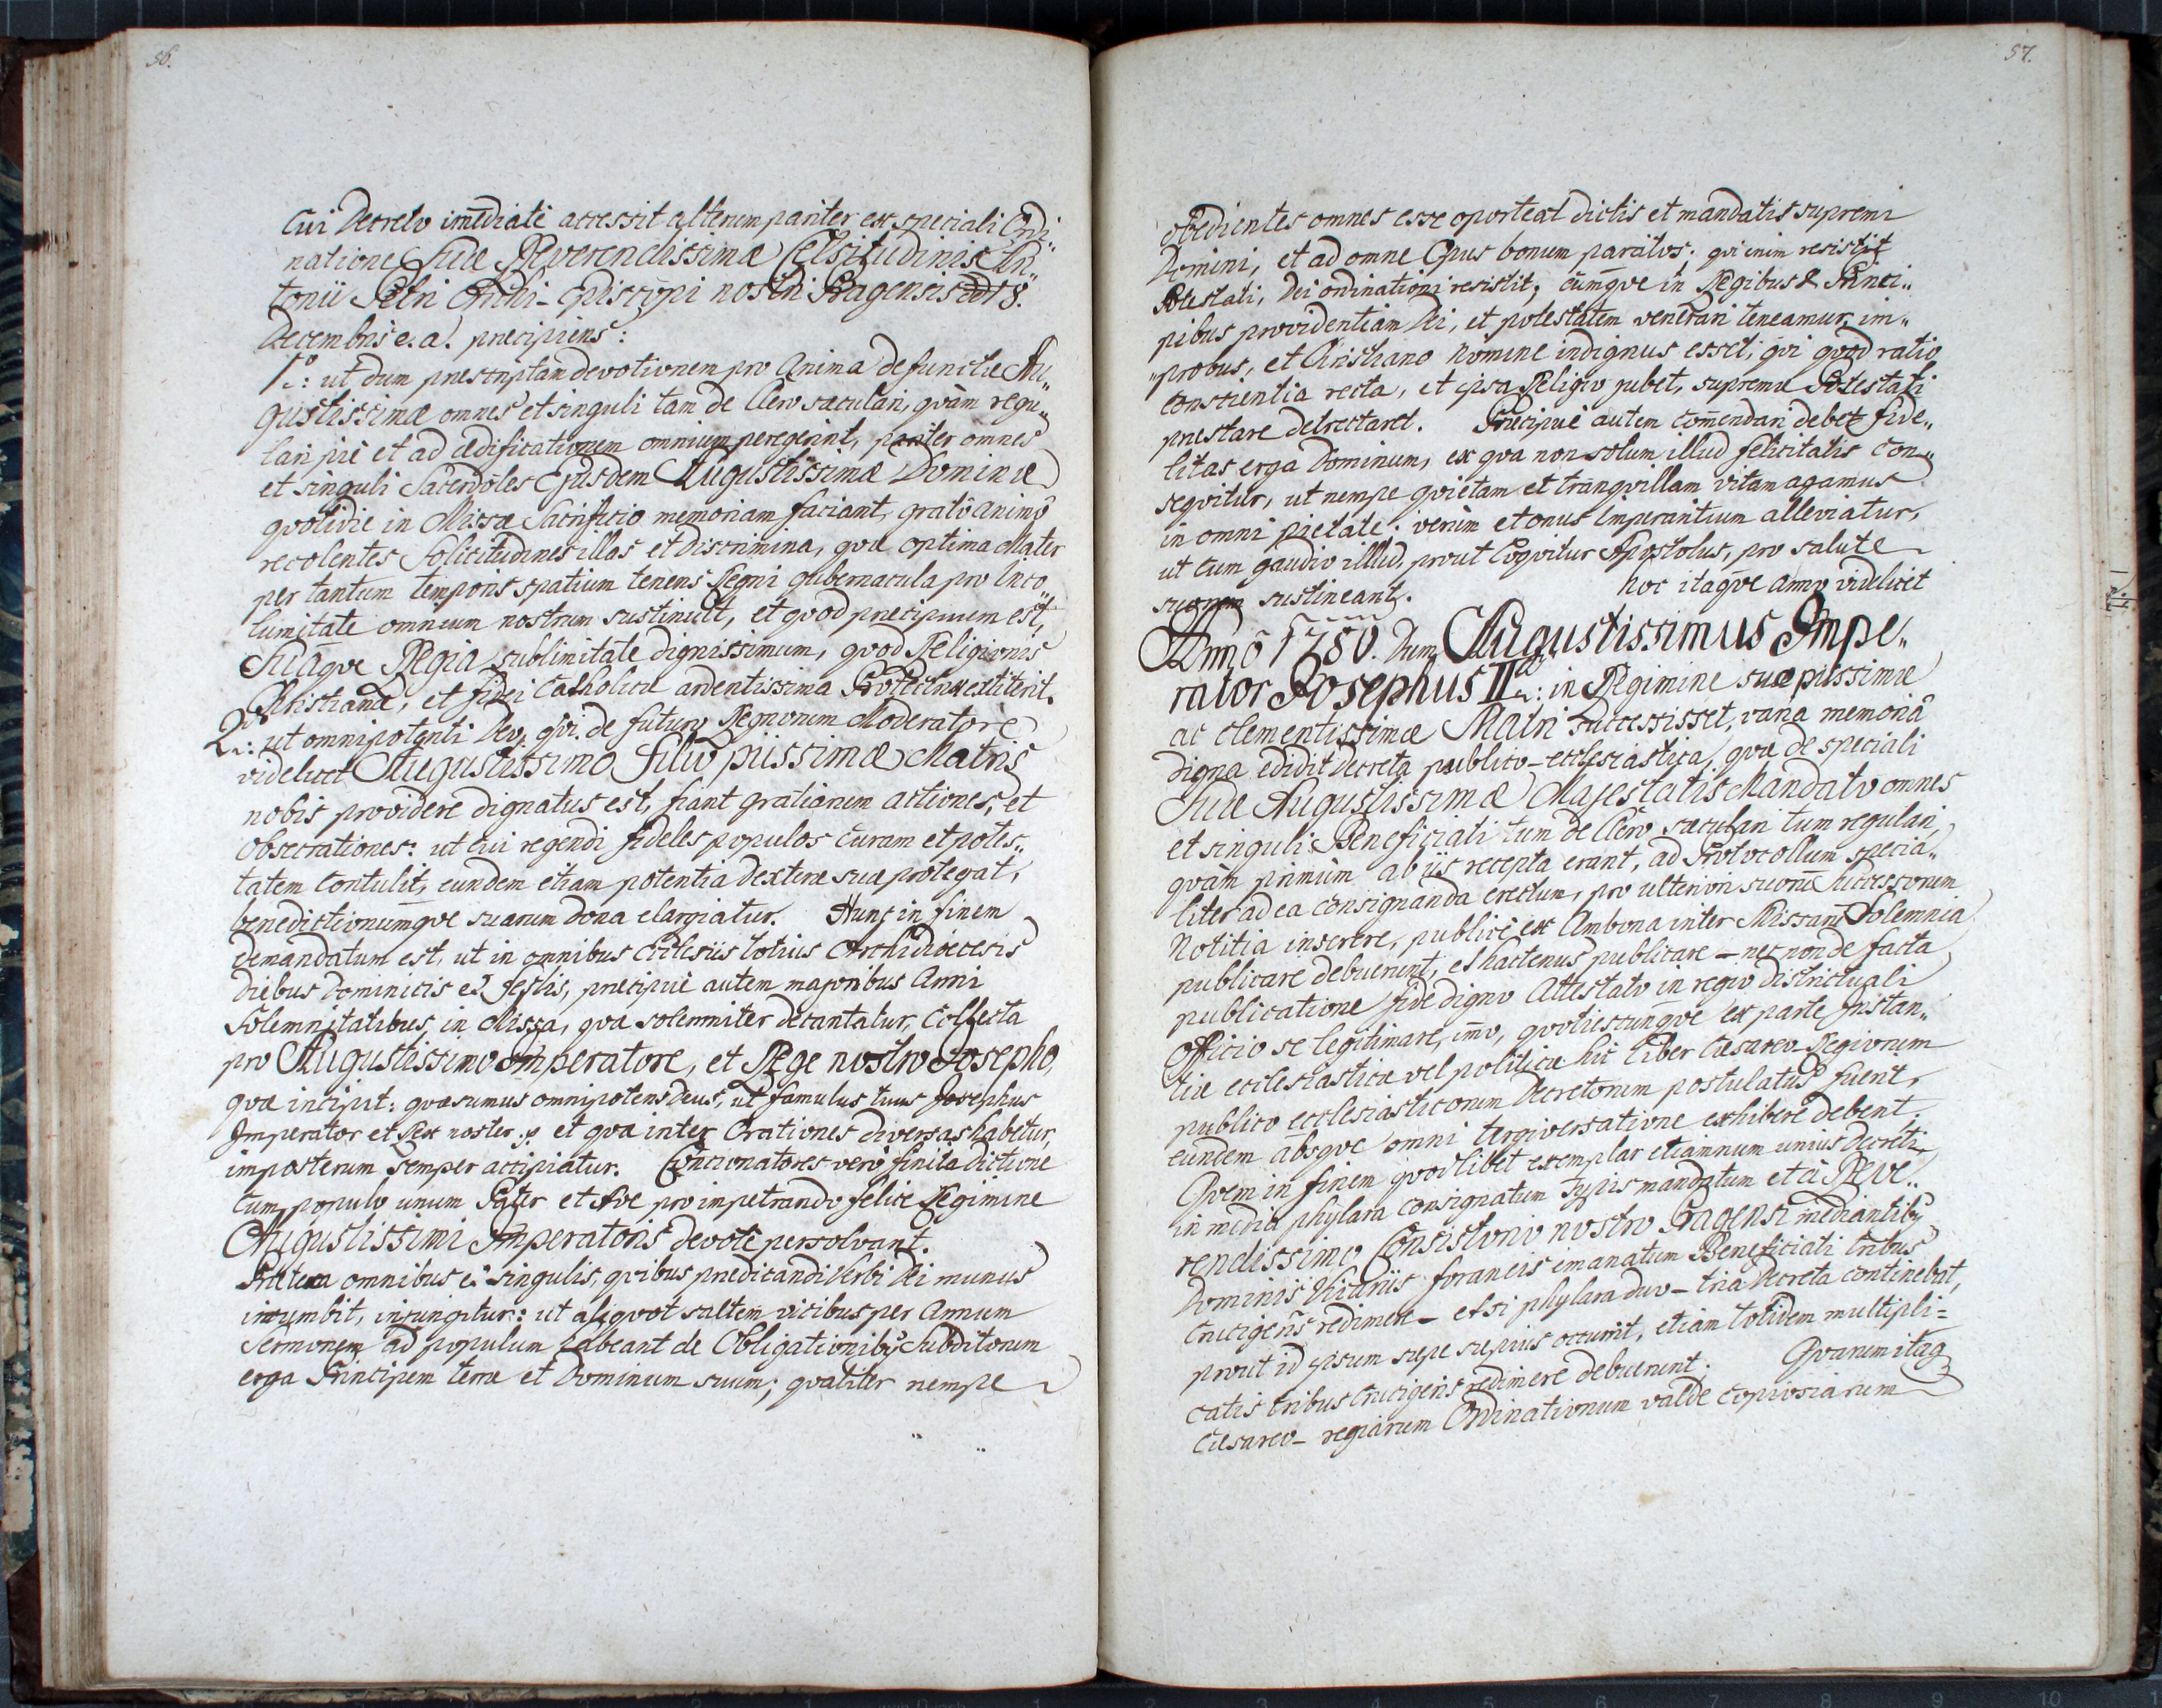 56.
Cui Decreto imediatè accessit alterum pariter ex speciali Ordi„
natione Suae Reverendissimae Celsitudinis An„
tonii Petri Archi-Episcopi nostri Pragensis ddto 8.
Decembris e. a. precipiens:
1o: ut dum prescriptam devotionem pro Anima defunctae Au„
gustissimae omnes et singuli tam de Clero saeculari, quàm regu„
lari piè et ad aedificationem omnium peregerint, pariter omnes
et singuli Sacerdotes Ejusdem Augustissimae Dominae
quotidie in Missae Sacrificio memoriam faciant, gratô animô
recolentes Solicitudines illas et Discrimina, quae optima Mater
per tantum temporis spatium tenens Regni gubernacula pro Inco„
lumitate omnium nostrum sustinuit, et quod precipuum est,
Suâque Regia sublimitate dignissimum, quod Religionis
Christianae, et fidei Catholicae ardentissima Protectrix extiterit.
2do: ut omnipotenti Deo, qui de futuro Regnorum Moderatore
videlicet Augustissimo Filio piissimae Matris
nobis providere dignatus est, fiant gratiarum actiones, et
Obsecrationes: ut Cui regendi fideles populos Curam et potes„
tatem Contulit, eundem etiam potentia dexterae suae protegat,
benedictionumque suarum dona elargiatur. Hunc in finem
demandatum est, ut in omnibus Ecclesiis totius Archidioecesis
diebus Dominicis et festis, precipuè autem majoribus Anni
Solemnitatibus, in Missa, quae solemniter decantatur, Collecta
pro Augustissimo Imperatore, et Rege nostro Josepho,
quae incipit: quaesumus omnipotens Deus, ut famulus tuus Josephus
Imperator et Rex noster et quae inter Orationes diversas habetur,
imposterum semper accipiatur. Concionatores verò finita dictione
Cum populo unum Pater et Ave pro impetrando felice Regimine
Augustissimi Imperatoris devotè persolvant.
Praeterea omnibus et singulis, quibus predicandi Verbi Dei munus
incumbit, injungitur: ut aliquot saltem vicibus per Annum
Sermonem ad populum habeant de Obligationibus Subditorum
erga Principem terrae et Dominum suum; qualiter nempe
57.
obedientes omnes esse oporteat dictis et mandatis supremi
Domini, et ad omne Opus bonum paratos; qui enim resistit
Potestati, Dei ordinationi resistit; cumque in Regibus & Princi„
pibus providentiam Dei, et potestatem venerari teneamur, im„
„probus, et Christiano Nomine indignus esset, qui quod ratio,
Conscientia recta, et ipsa Religio jubet, supremae Potestati
prestare detrectaret. Precipuè autem Comendari debet fide„
litas erga Dominum, ex qua non solum illud felicitatis Con„
sequitur, ut nempe quietam et tranquillam vitam agamus
in omni pietate; verùm et onus Imperantium alleviatur,
ut Cum gaudio illud, prout Loquitur Apostolus, pro salute
suorum sustineant. Hoc itaque anno videlicet
Anno 1780. Dum Augustissimus Impe„
rator Josephus IIdus: in Regimine suae piissimae
ac Clementissimae Matri Successisset, varia memoriâ
digna edidit Decreta publico-ecclesiastica, quae de speciali
Suae Augustissimae Majestatis Mandato omnes
et singuli Beneficiati tum de Clero saeculari tum regulari,
quàm primùm ab iis recepta erant, ad Protocollum specia„
liter ad ea Consignanda erectum, pro ulteriori suorum Successorum
Notitia inserere, publicè ex Ambona inter Missarum Solemnia
publicare debuerunt, et hactenus publicare – nec non de facta
publicatione fide digno Attestato in regio districtuali
Officio se legitimare, imò, quotiescunque ex parte Instan„
tiae ecclesiasticae vel politicae hic Liber Caesareo-Regiorum
publico ecclesiasticorum Decretorum postulatus fuerit,
eundem absque omni tergiversatione exhibere debent;
Quem in finem quodlibet exemplar etiamnum unius Decreti,
in media phylara Consignatum Typis mandatum et à Reve„
rendissimo Consistorio nostro Pragensi mediantibus
Dominis Vicariis foraneis imanatum Beneficiati tribus
Crucigeris redimere – et si phylara duo – tria Decreta continebat,
prout id ipsum saepe saepius occurrit, etiam totidem multipli=
catis tribus Crucigeris redimere debuerunt. Quarum itaque
Caesareo – regiarum Ordinationum valde Copiosiarum